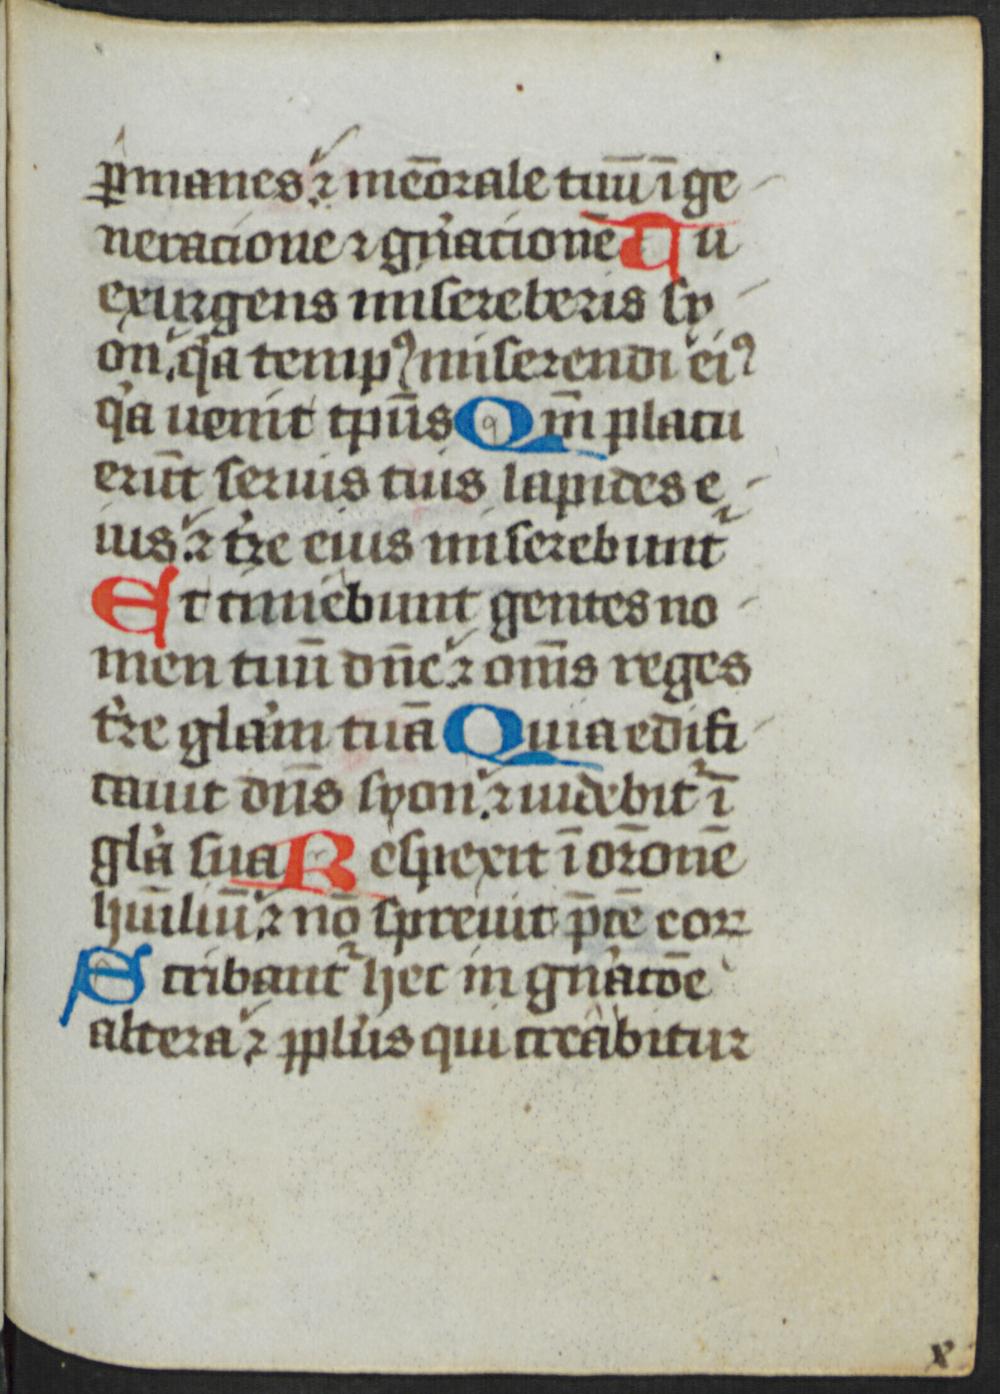 p̱manes ⁊ mēorale tuū ī ge
neracione ⁊ gn̄acionē Tu
exurgens misereberis sy
on, qͥa tempꝰ miserendi eiꝰ
qͥa uenit tp̄us Qm̄ placu
erūt seruis tuis lapides e
ius ⁊ tr̄e eius miserebunt᷑
Et timebunt gentes no
men tuū dn̄e ⁊ om̄s reges
tr̄e glam̄ tuā Quia edifi
cauit dn̄s syon ⁊ uidebit᷑ ī
glā sua Respexit ī or̄onē
hūiliū ⁊ nō spreuit p̄cē eoꝝ
Scribant᷑ hec in gn̄acōe
altera ⁊ ꝓpl̄us qui creabitur
x